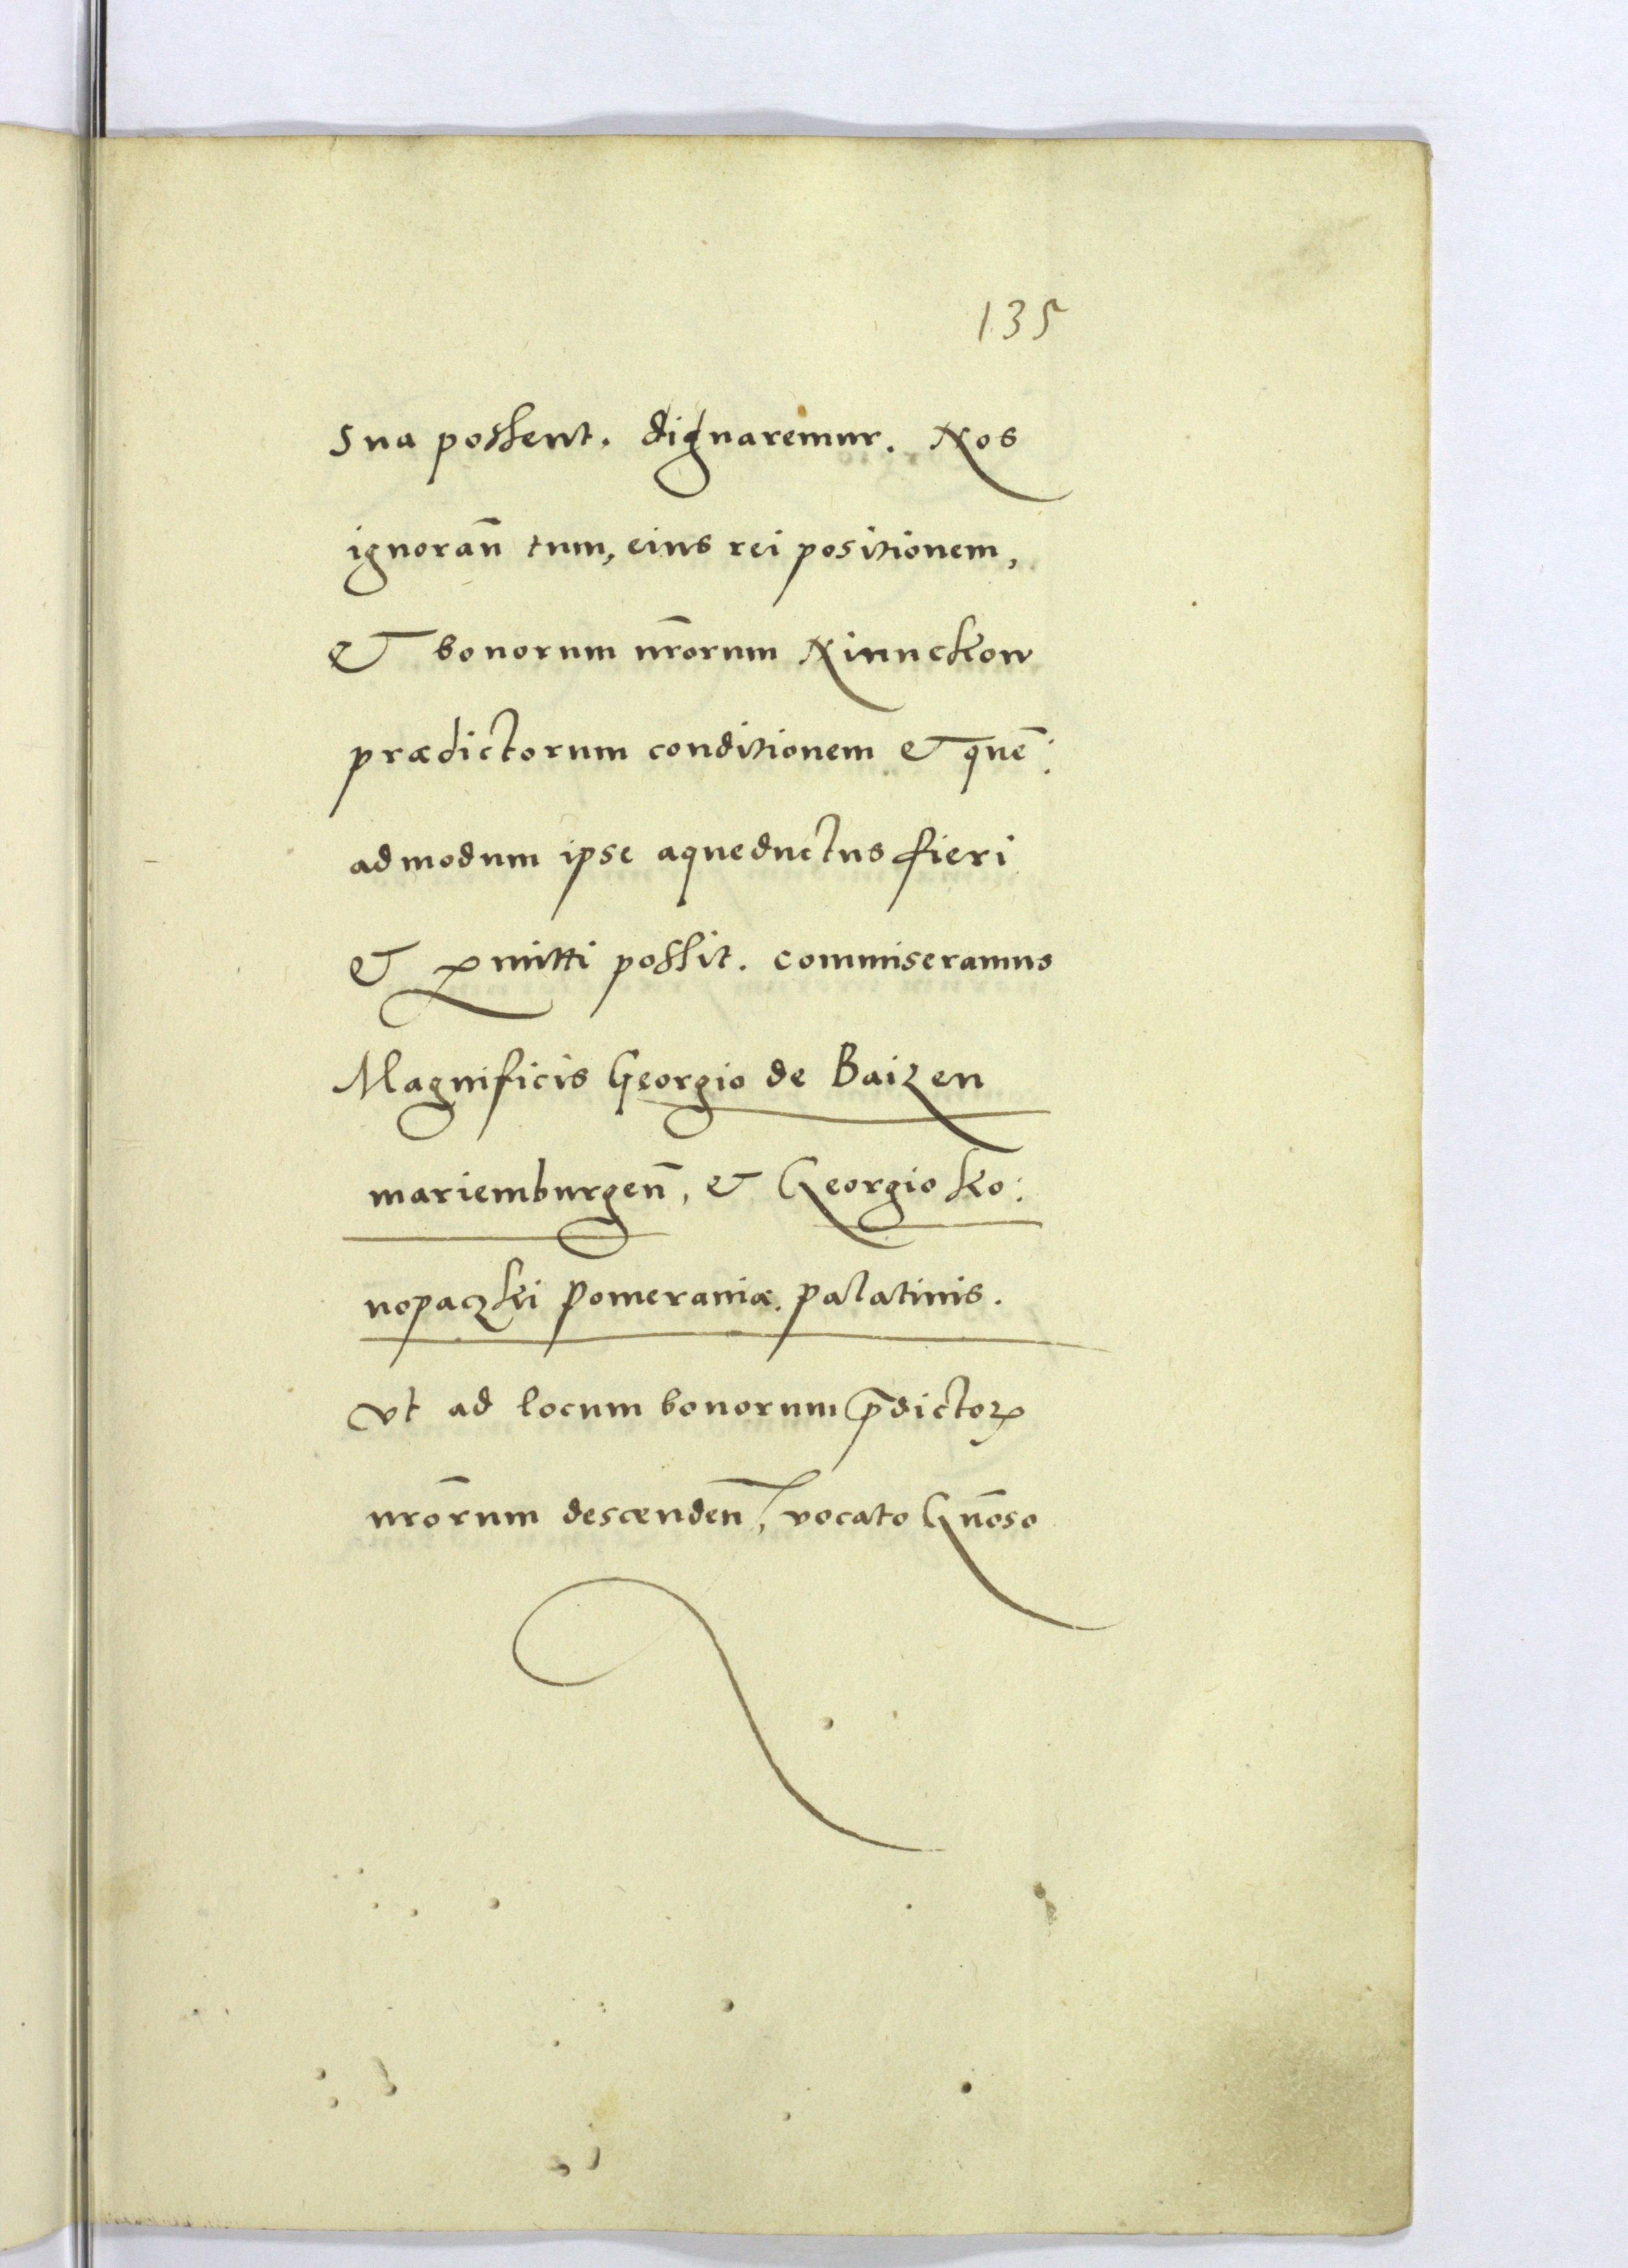 135
sua possent. dignaremur. Nos
ignorañ tum, eius rei positionem,
et bonorum nr̃orum Ninnckow
prædictorum conditionem et quē:
admodum ipse aqueductus fieri
et ꝑmitti possit. commiseramus
Magnificis Georgio de Baizen
mariemburgeñ, et Georgio ko:
nopaczki Pomeraniæ. palatinis.
Vt ad locum bonorum p̄dictoꝝ
nr̃orum descendeñ, vocato Gñoso